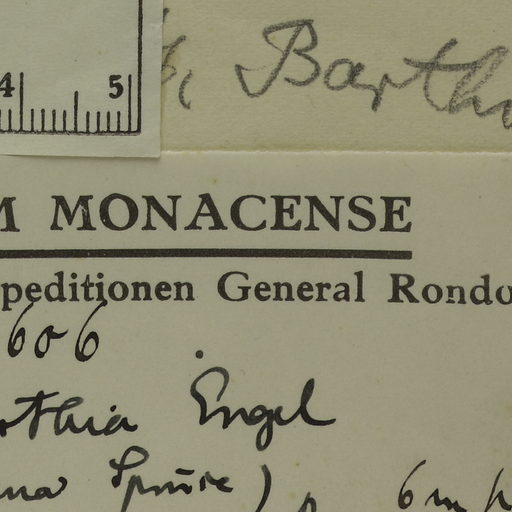 4 5
Barth
M MONACENSE
peditionen General Rondo
606
thia Engl
Spruce) 6 m